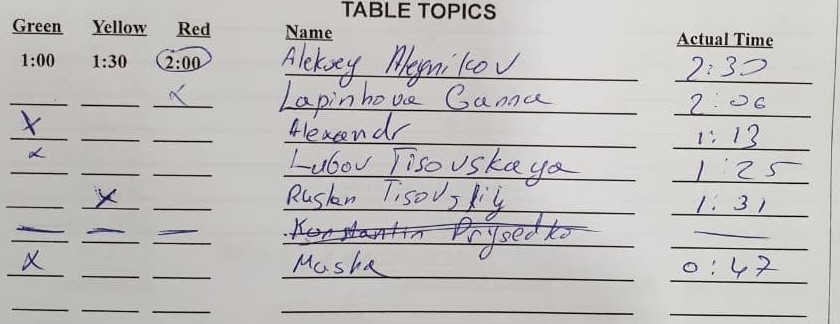 TABLE TOPICS
Green Yellow Red Name Actual Time
1:00 1:30 2:00 Aleksey Aleynikov 2:30
x Lapinhova Ganna 2:06
x Alexandr 1:13
x Lubov Tisovskaya 1:25
x Ruslan Tisovskiy 1:31
— — — Konstantin Prysedko —
x Masha 0:47